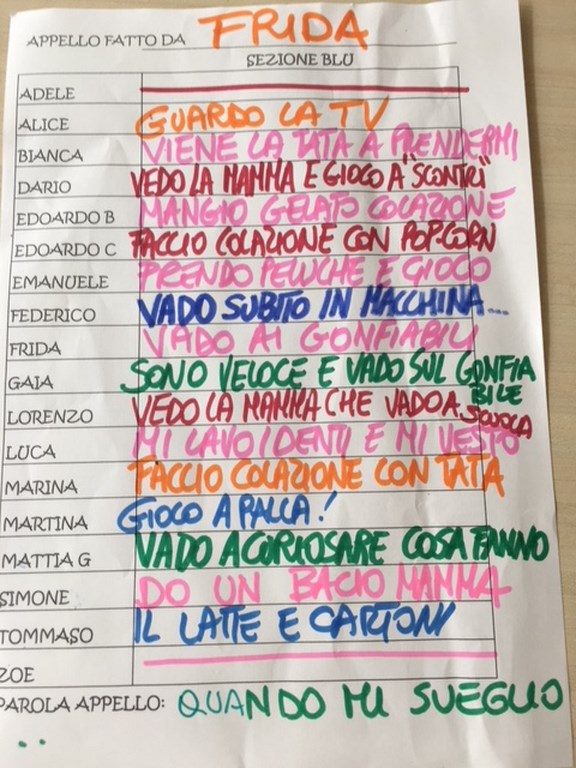 APPELLO FATTO DA FRIDA
SEZIONE BLU
ADELE
ALICE GUARDO LA TV
BIANCA VIENE LA TATA A PRENDERMI
DARIO VEDO LA MAMMA E GIOCO A "SCONTRI"
EDOARDO B MANGIO GELATO COLAZIONE
EDOARDO C FACCIO COLAZIONE CON POPCORN
EMANUELE PRENDO PELUCHE E GIOCO
FEDERICO VADO SUBITO IN MACCHINA...
FRIDA VADO AI GONFIABILI
GAIA SONO VELOCE E VADO SUL GONFIA
BILE
LORENZO VEDO LA MAMMA CHE VADO A SCUOLA
LUCA MI LAVO I DENTI E MI VESTO
MARINA FACCIO COLAZIONE CON TATA
MARTINA GIOCO A PALLA!
MATTIA G VADO A CURIOSARE COSA FANNO
SIMONE DO UN BACIO MAMMA
TOMMASO IL LATTE E CARTONI
ZOE
PAROLA APPELLO: QUANDO MI SVEGLIO
..